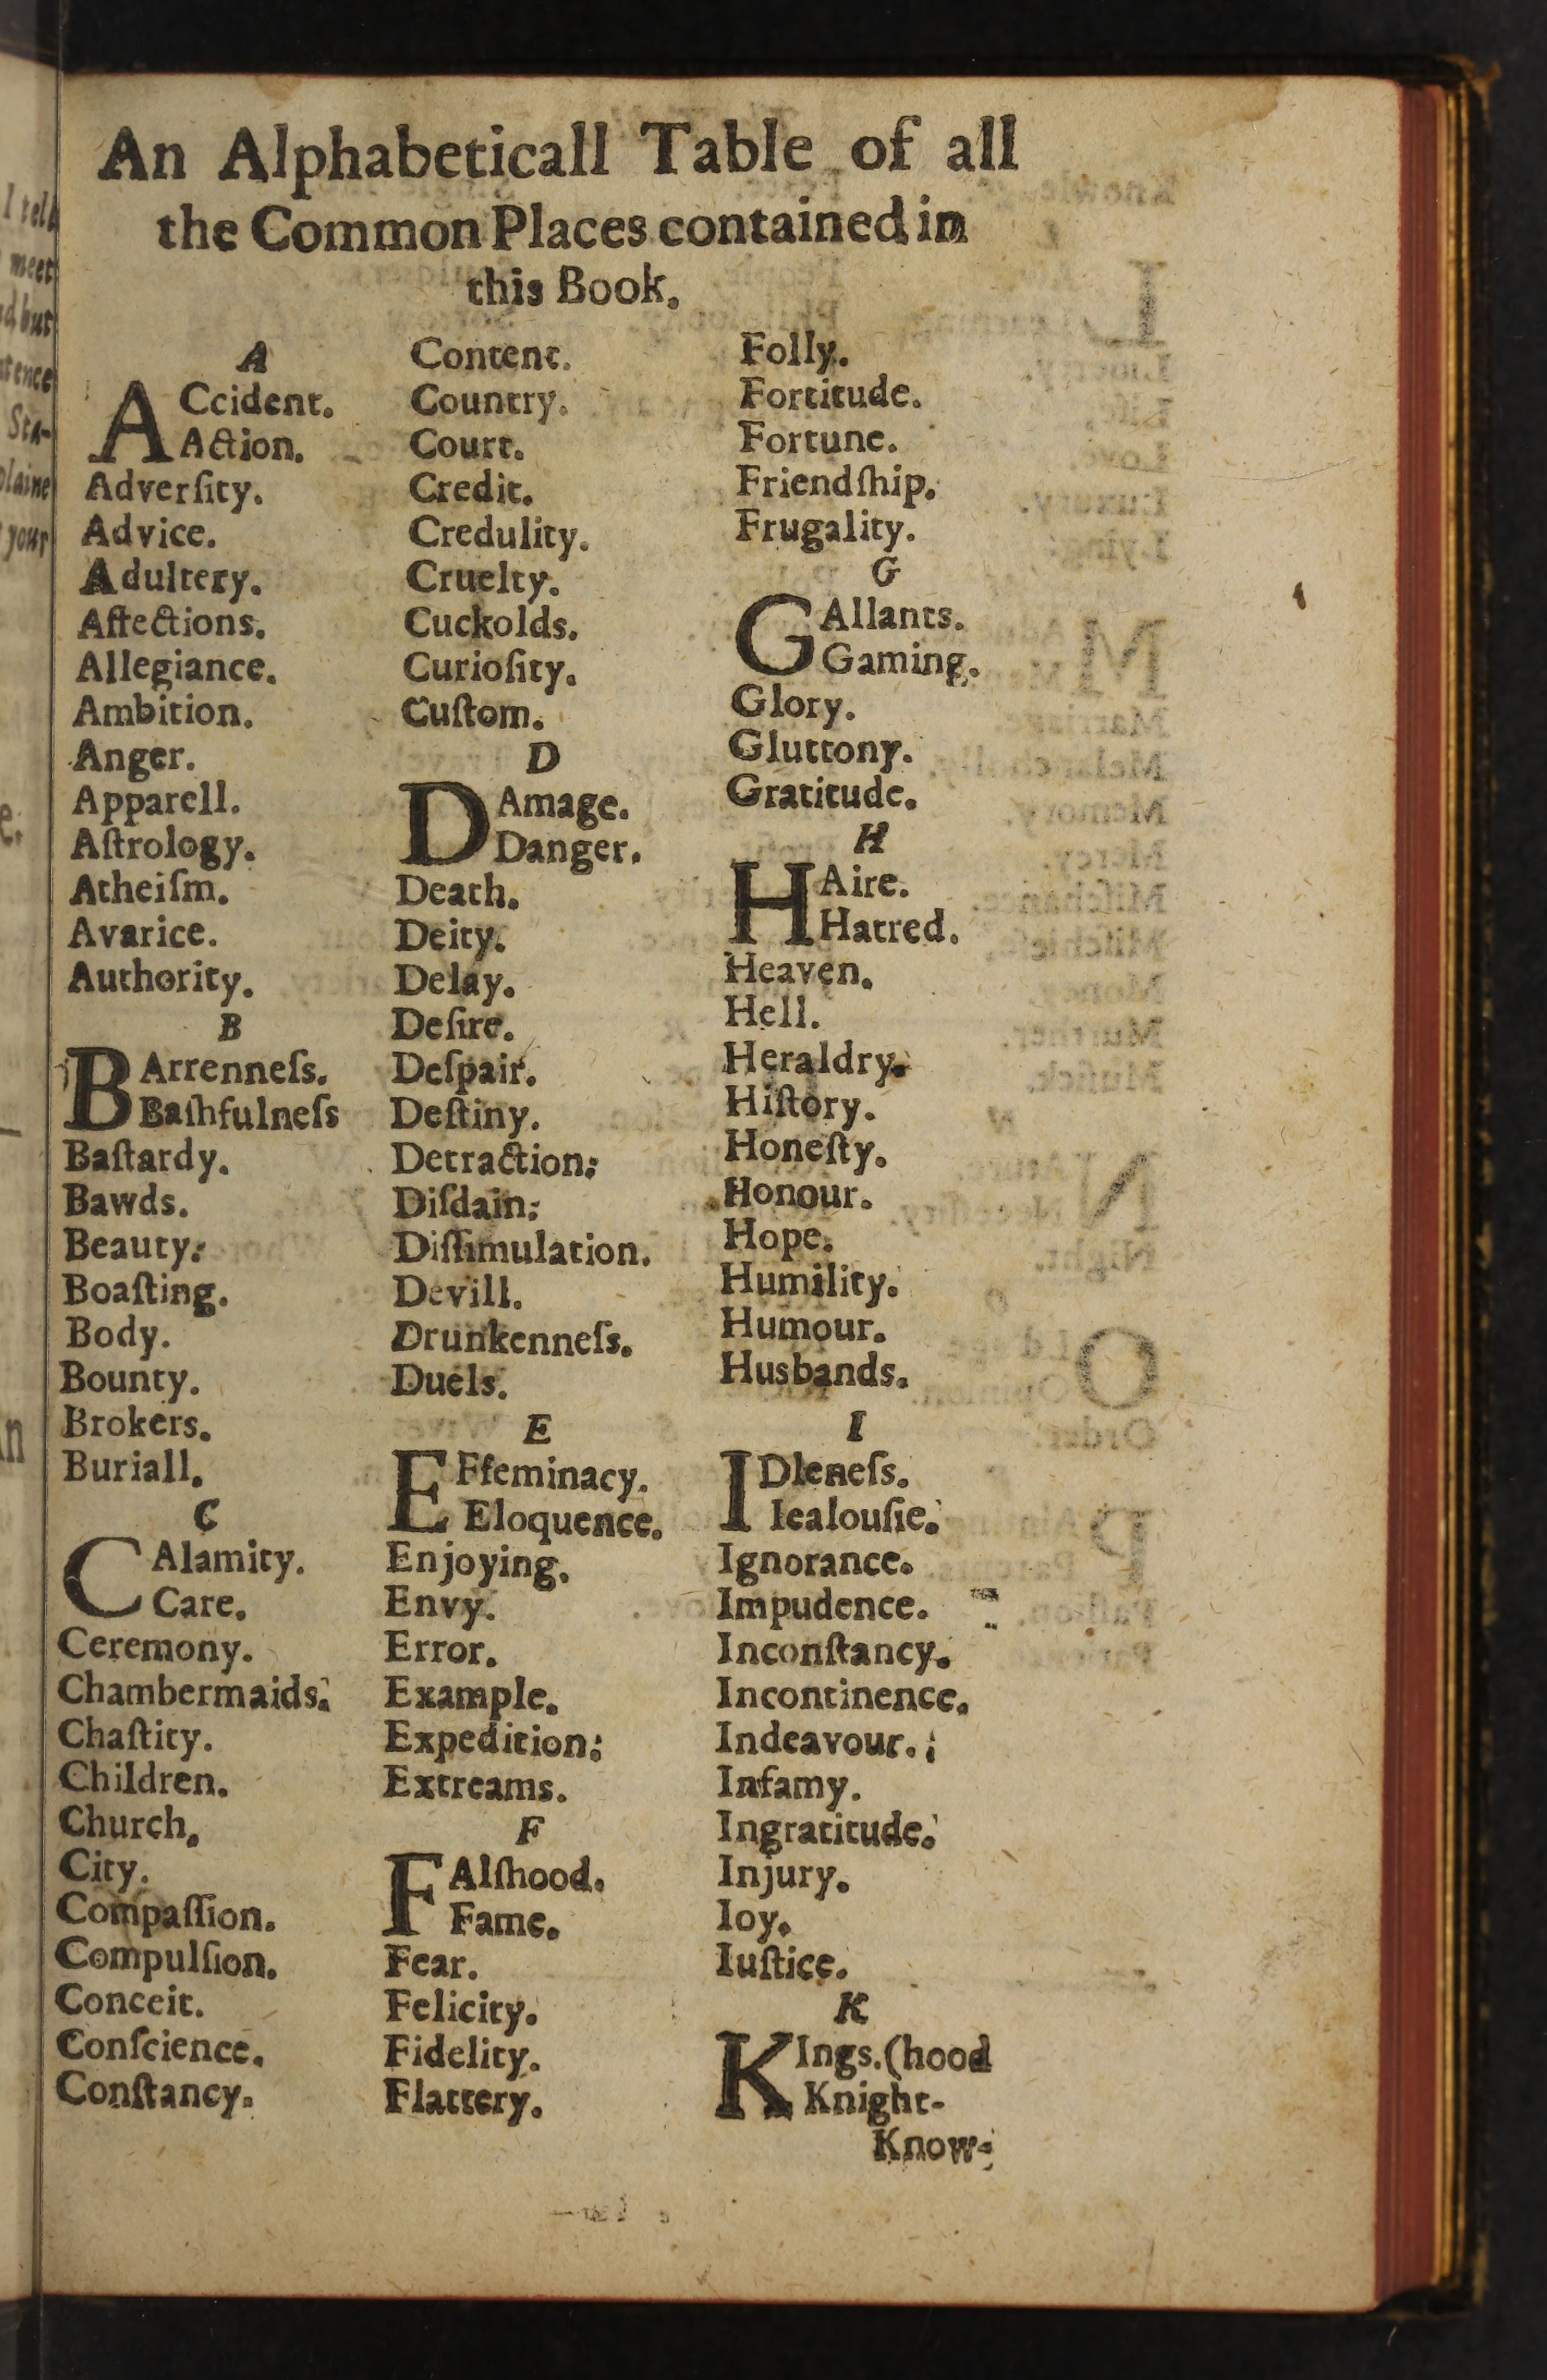 An Alphabeticall Table of all
the Common Places contained in
this Book.
A
ACcident.
Action.
Adverſity.
Advice.
Adultery.
Affections.
Allegiance.
Ambition.
Anger.
Apparell.
Aſtrology.
Atheiſm.
Avarice.
Authority.
B
BArrenneſs.
Baſhfulneſs
Baſtardy.
Bawds.
Beauty.
Boaſting.
Body.
Bounty.
Brokers.
Buriall.
C
CAlamity.
Care.
Ceremony.
Chambermaids.
Chaſtity.
Children.
Church.
City.
Compaſſion.
Compulſion.
Conceit.
Conſcience.
Conſtancy.
Content.
Country.
Court.
Credit.
Credulity.
Cruelty.
Cuckolds.
Curioſity.
Cuſtom.
D
DAmage.
Danger.
Death.
Deity.
Delay.
Deſire.
Deſpair.
Deſtiny.
Detraction.
Diſdain.
Diſſimulation.
Devill.
Drunkenneſs.
Duels.
E
EFfeminacy.
Eloquence.
Enjoying.
Envy.
Error.
Example.
Expedition.
Extreams.
F
FAlſhood.
Fame.
Fear.
Felicity.
Fidelity.
Flattery.
Folly.
Fortitude.
Fortune.
Friendſhip.
Frugality.
G
GAllants.
Gaming.
Glory.
Gluttony.
Gratitude.
H
HAire.
Hatred.
Heaven.
Hell.
Heraldry.
Hiſtory.
Honeſty.
Honour.
Hope.
Humility.
Humour.
Husbands.
I
IDleneſs.
Iealouſie.
Ignorance.
Impudence.
Inconſtancy.
Incontinence.
Indeavour.
Infamy.
Ingratitude.
Injury.
Ioy.
Iuſtice.
K
KIngs.(hood
Knight-
Know-
I tell
meet
but
Sta-
plaine
your